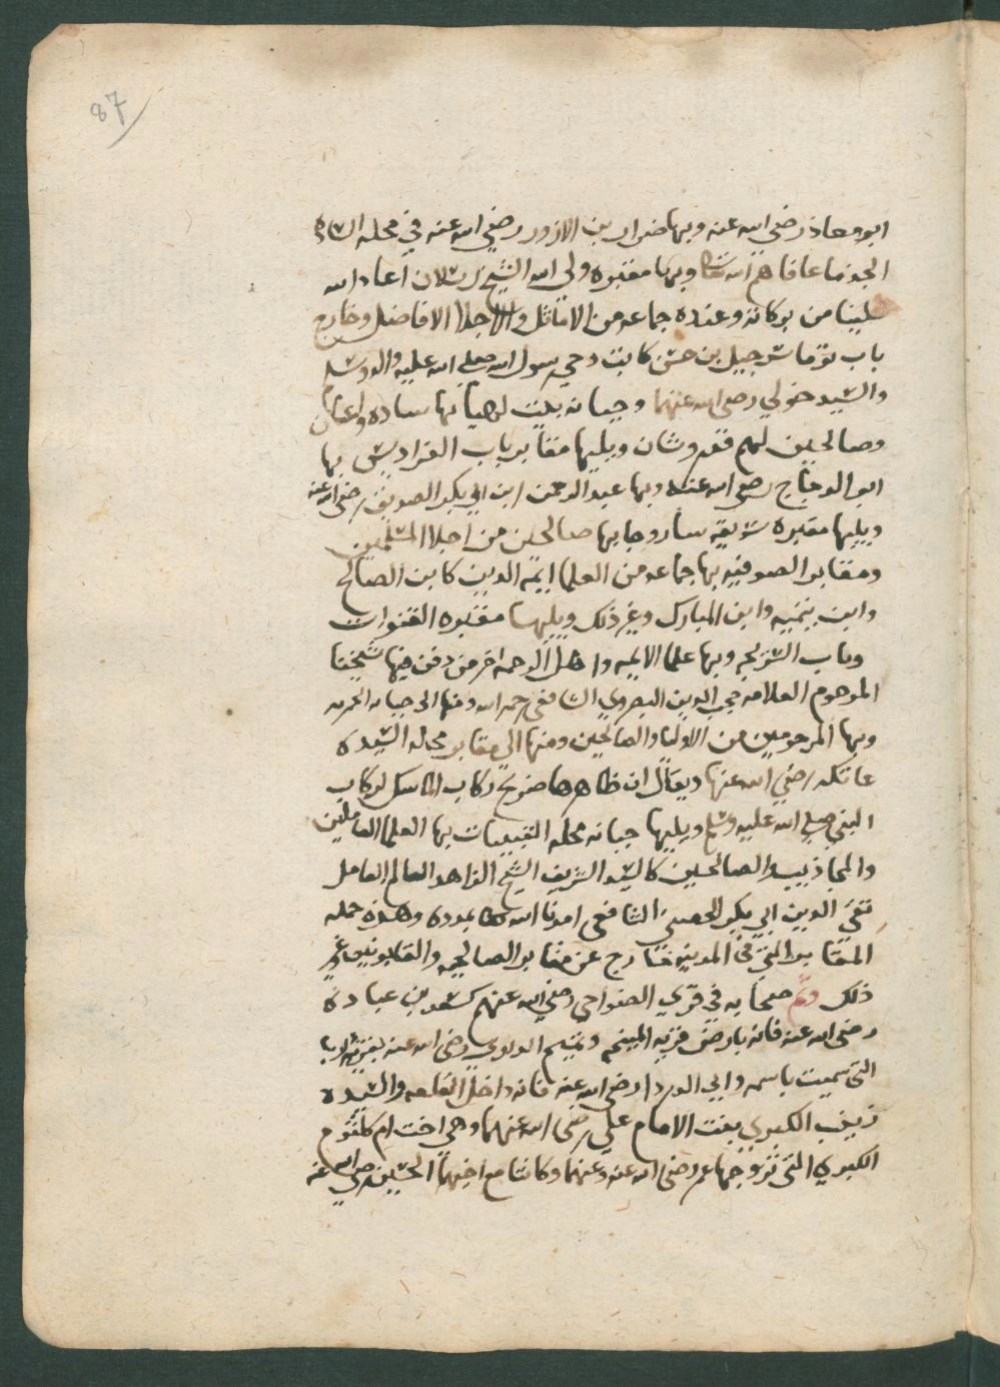 87
ابو معاذ رضي الله عنه وبها ضرار بن الازور رضي الله عنه في محله الساده
الجذما عافاهم الله تعالى وبها مقبره ولي الله الشيخ رسلان اعاد الله
علينا من بركاته وعنده جماعه من الاماثل والاجلا الافاضل وخارج
باب توما شرحبيل بن حسنه كاتب وحي رسول الله صلى الله عليه واله وسلم
والسيد خولي رضي الله عنهما وجبانه بيت لهيا بها ساده واعيان
وصالحين لهم قدر وشان ويليها مقابر باب الفراديس بها
ابو الدحداح رضي الله عنه وبها عبد الرحمن ابن ابي بكر الصديق رضي الله عنه
ويليها مقبره سويقه ساروجا بها صالحين من اجلا المسلمين
ومقابر الصوفيه بها جماعه من العلما ايمه الدين كابن الصالح
وابن تيميه وابن المبارك وغير ذلك ويليها مقبره القنوات
وباب السريجه وبها علما الايمه واهل الرحمه اخر من دفن فيها شيخنا
المرحوم العلامه محب الدين البصروي الشافعي رحمه الله ومنها الى جبانه الحمريه
وبها المرحومين من الاوليا والصالحين ومنها الى مقابر محله السيده
عاتكه رضي الله عنها ويقال ان ظاهرها ضريح ركاب الماسك لركاب
النبي صلى الله عليه وسلم ويليها جبانه محله القبيبات بها العلما العاملين
والمجاذيب والصالحين كالسيد الشريف الشيخ الزاهد العالم العامل
تقي الدين ابي بكر الحصني الشافعي امدنا الله تعالى بمدده وهذه جمله
المقابر التي في المدينه خارج عن مقابر الصالحيه والقابونين وغير
ذلك وثم صحابه في قري الضواحي رضي الله عنهم كسعد بن عباده
رضي الله عنه فانه بارض قريه المنيحه وتميم الداري رضي الله عنه بقريته
التي سميت باسمه وابي الدردا رضي الله عنه فانه داخل القلعه والسيده
زينب الكبري بنت الامام علي رضي الله عنهما وهي اخت ام كلثوم
الكبري التي تزوجها عمر رضي الله عنه وعنهما وكانتا مع اخيهما الحسين رضي الله عنه